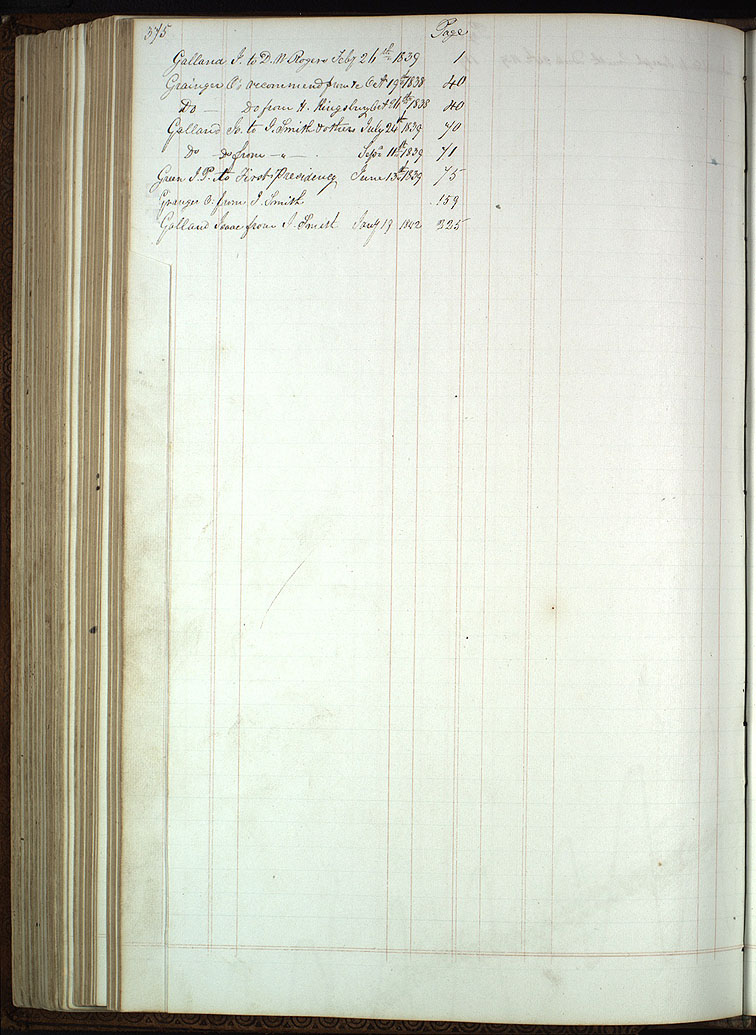 375
Page
Galland I. to D. W. Rogers Feby 26th 1839 1
Grainger O's recommend from Oct 19th 1838 40
Do — Do from H. Kingsbury Oct 26th 1838 40
Galland Is. to J. Smith & others July 24th 1839 70
Do Do from — " — . Sepr 11th 1839 71
Green J. P. to First Presidency June 13th 1839 75
Granger O: from J. Smith 159
Galland Isaac from J. Smith Jany 19 1842 225